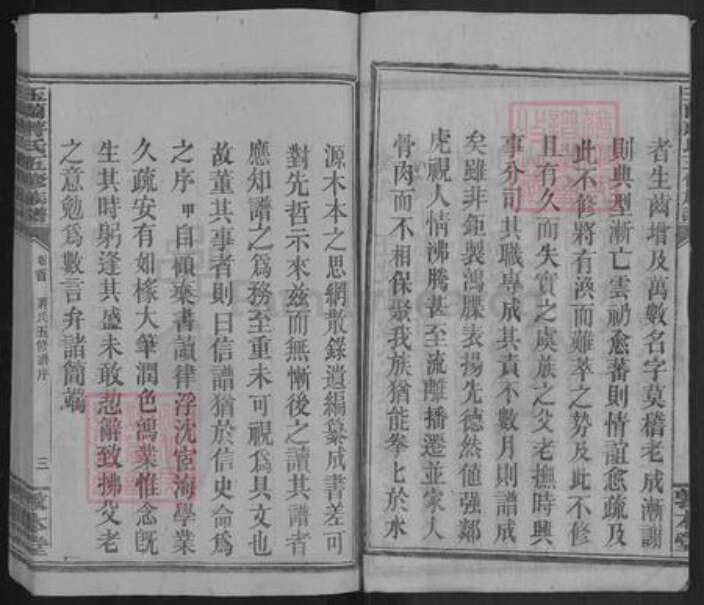 者生齒增及萬數名字莫稽老成漸謝
則典型漸亡雲礽愈蕃則情誼愈疏及
此不修將有渙而難萃之勢及此不修
且有久而失實之虞族之父老撫時興
事分司其職專成其責不數月則譜成
矣雖非鉅製鴻牒表揚先德然值强鄰
虎視人情沸騰甚至流離播遷並家人
骨肉而不相保聚我族猶能拳上於水
源木本之思網散錄遺編纂成書差可
對先哲示來茲而無慚後之讀其譜者
應知譜之爲務至重未可視爲具文也
故董其事者則曰信譜猶於信史命爲
之序甲自顧棄書讀律浮沈宦海學業
久疏安有如椽大筆潤色鴻業惟念旣
生其時躬逢其盛未敢恝辭致拂父老
之意勉爲數言弁諸簡端
玉蘭蔣氏五修族譜
卷首
蔣氏五修譜序
三
敦本堂